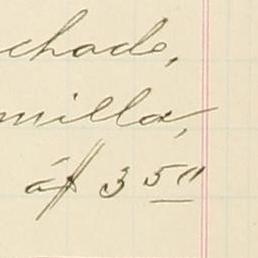 chado,
milla,
á $ 3 50